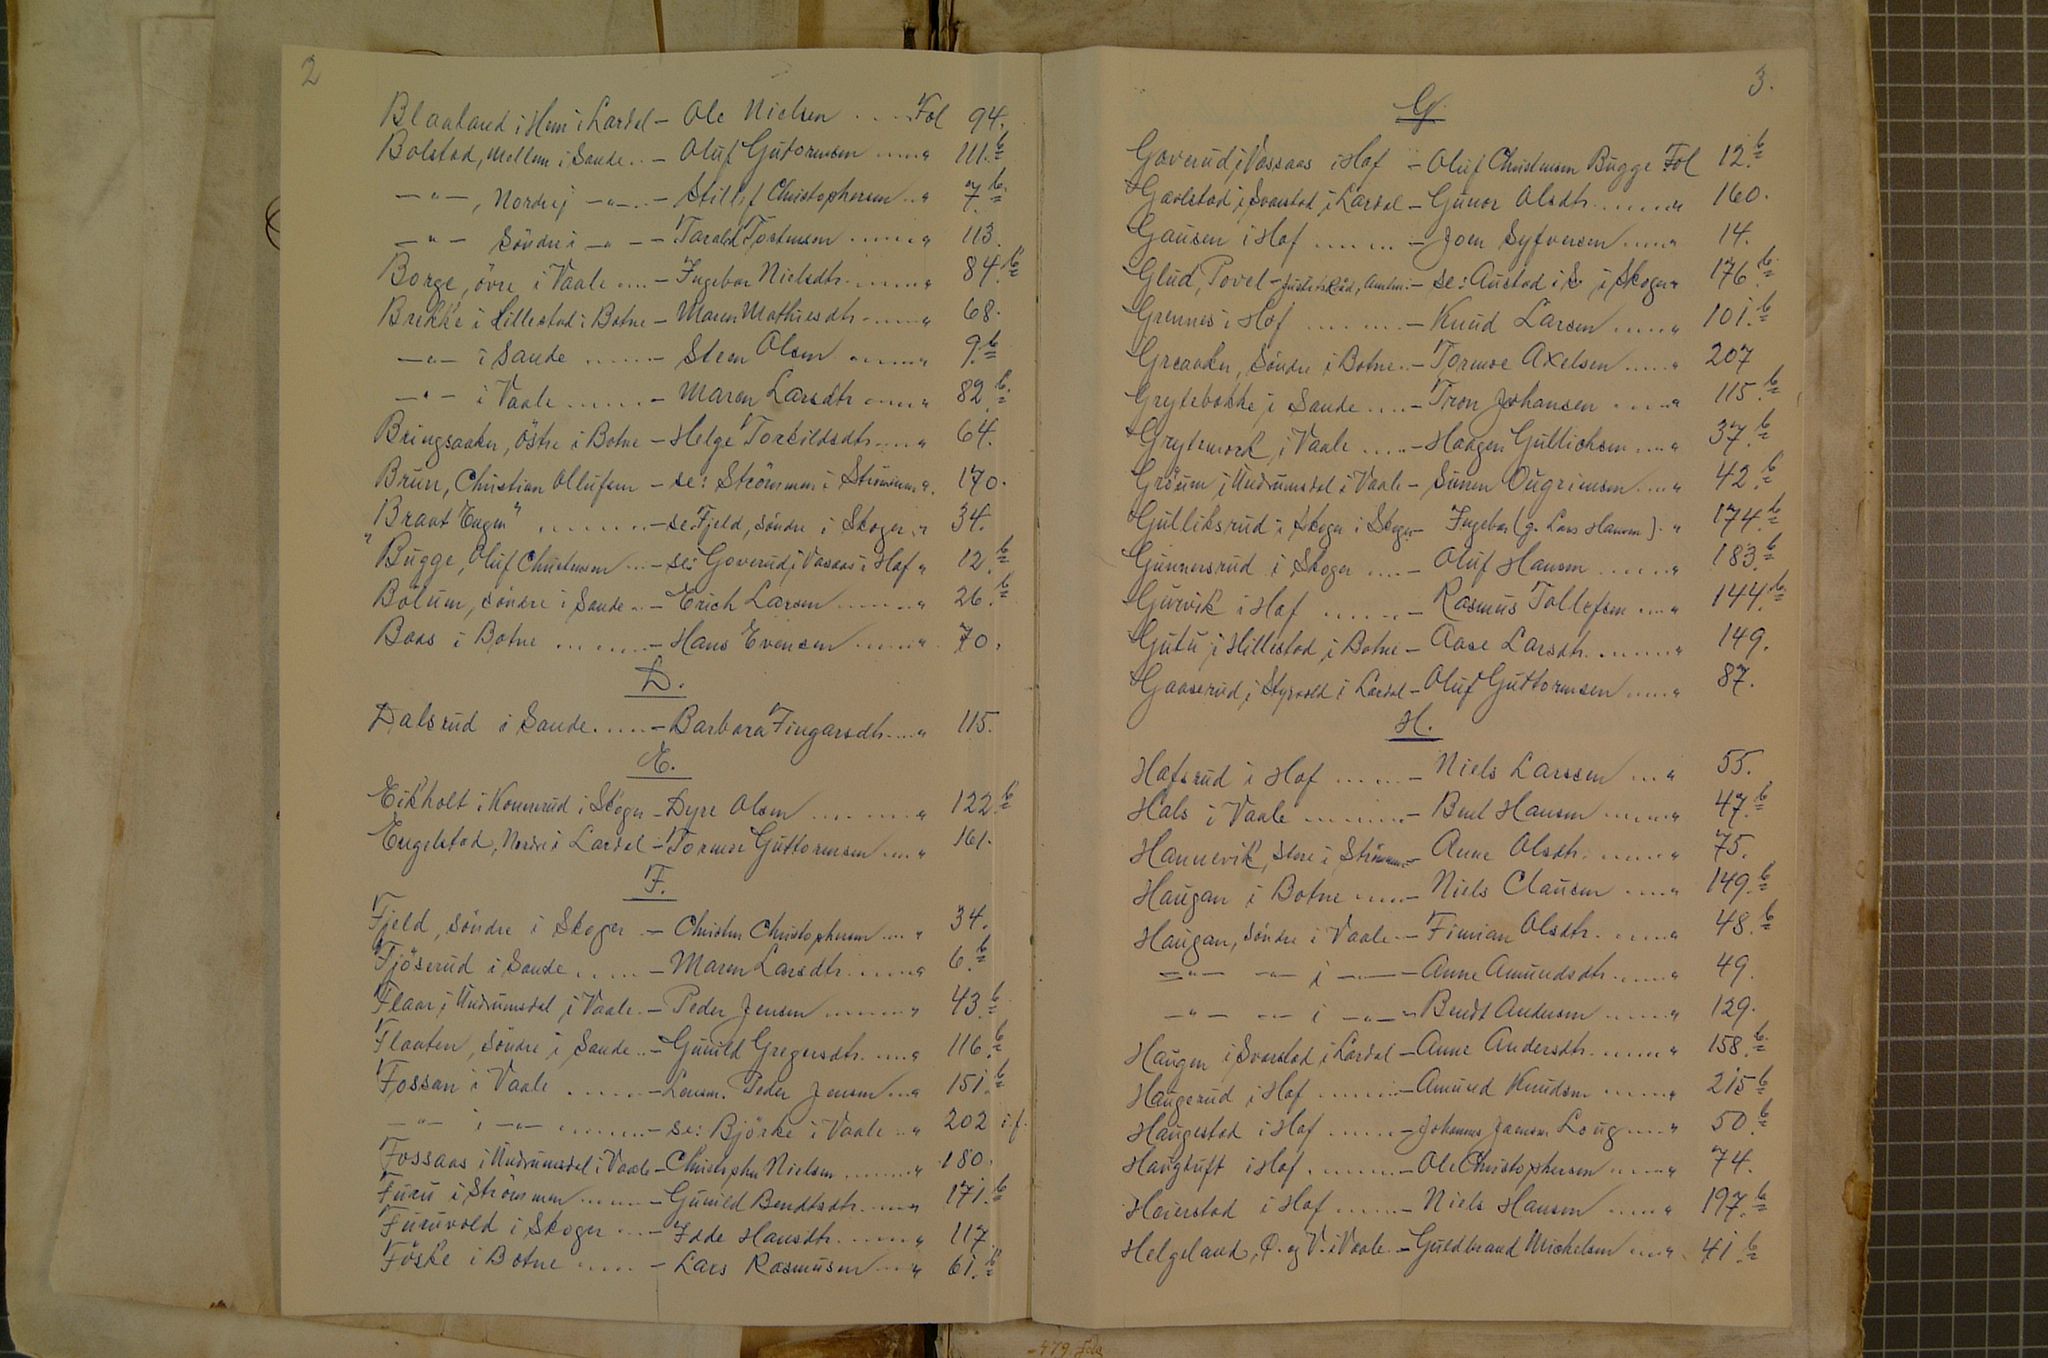 2
Blaaland i Hem i Lardal - Ole Nielsen .... Fol 94.
Bolstad, Mellem i Sande .. - Oluf Gutormsen ..... " 111.b
- " - , Nordre i - " - .. - Christophersen .. " 7.b
- " - Söndre i - " - - Tarald Tostensen ...... " 113.
Borge, övre i Vaale .... - Ingebor Nielsdtr ....... " 84.b
Brekke i Hillestad i Botne - Maren Mathiesdtr ...... " 68.
- " - i Sande ....... - Steen Olsen ....... " 9.b
- " - i Vaale ....... - Maren Larsdtr ...... " 82.b
Bringsaker, Östre i Botne - Helge Torkildsdtr ..... " 64.
Brun, Christian Ollufsen - se: Strömmen i Strömmen ". 170.
"Braat Engen" ........ - se: Fjeld, söndre i Skoger .. " 34.
Bugge, Oluf Christensen ... - se: Goverud i Vassaas i Hof " 12.b
Bölum, söndre i Sande ... - Erich Larsen ........ " 26.b
Boas i Botne ........ - Hans Evensen ...... " 70.
D.
Dalsrud i Sande ..... - Barbara Fingarsdtr .... " 115.
E.
Eikholt i Konnerud i Skoger - Dyre Olsen ........ " 122.b
Engelstad, Nordre i Lardal - Tormoe Guttormsen .... " 161.
F.
Fjeld, söndre i Skoger .. - Christen Christophersen .... " 34.
Fjöserud i Sande ...... - Maren Larsdtr ...... " 6.b
Flaar i Undrumsdal i Vaale .. - Peder Jensen ....... " 43.b
Flaaten, Söndre i Sande .. - Gunild Gregersdtr ..... " 116.b
Fossan i Vaale ....... - Lensm. Peder Jensen ... " 151.b
- " - i - " - ........ - se: Björke i Vaale .. " 202 i.f.
Fossaas i Undrumsdal i Vaale - Christopher Nielsen ....... " 180.
Furu i Strömmen ....... - Gunild Bendtsdtr ...... " 171.b
Furuvold i Skoger .... - Idde Hansdtr ...... " 117
Föske i Botne ..... - Lars Rasmussen .... " 61.b
3.
G.
Goverud i Vassaas i Hof - Oluf Christensen Bugge Fol 12.b
Gavlstad i Svarstad i Lardal - Gunor Olsdtr ....... " 160.
Gausen i Hof ........ - Joen Syfversen ..... " 14.
Glud, Povel - Justitsråd, Amtm. - se: Austad i S. i Skoger " 176.b
Grennes i Hof ........ - Knud Larsen ...... " 101.b
Greaaker, Söndre i Botne .. - Tormoe Axelsen ...... " 207
Grytebakke i Sande .... - Tron Johansen ..... " 115.b
Grytemork i Vaale ..... - Haagen Gullichsen .... " 37.b
Gröum i Undrumsdal i Vaale - Simen Ougrimsen .... " 42.b
Gulliksrud i Skoger i Skoger - Ingebor (g. Lars Hansen) . " 174.b
Gunnersrud i Skoger .... - Oluf Hansen ....... " 183.b
Gurvik i Hof ....... - Rasmus Tollefsen .... " 144.b
Gutu i Hillestad i Botne - Aase Larsdtr ........ " 149.
Gaaserud i Styrvold i Lardal - Oluf Guttormsen ..... " 87.
H.
Hafsrud i Hof ...... - Niels Larssen .... " 55.
Hals i Vaale ........ - Bent Hansen ...... " 47.b
Hannevik, store i Strömmen - Anne Olsdtr ...... " 75.
Haugan i Botne ..... - Niels Clausen ..... " 149.b
Haugan, söndre i Vaale .. - Finian Olsdtr ...... " 48.b
- " - - " - i - " - - Anne Amundsdtr ...... " 49.
- " - - " - i - " - - Bendt Andersen ...... " 129.
Haugen i Svarstad i Lardal - Anne Andersdtr ...... " 158.b
Haugerud i Hof ........ - Amund Knudsen ...... " 215 b
Haugestad i Hof ....... - Johannes Jaensen Loug ..... " 50.b
Haugtuft i Hof ........ - Ole Christophersen ..... " 74.
Heierstad i Hof ....... - Niels Hansen ..... " 197.b
Helgeland, Ö. og V. i Vaale .. - Guldbrand Mickelsen .... " 41.b